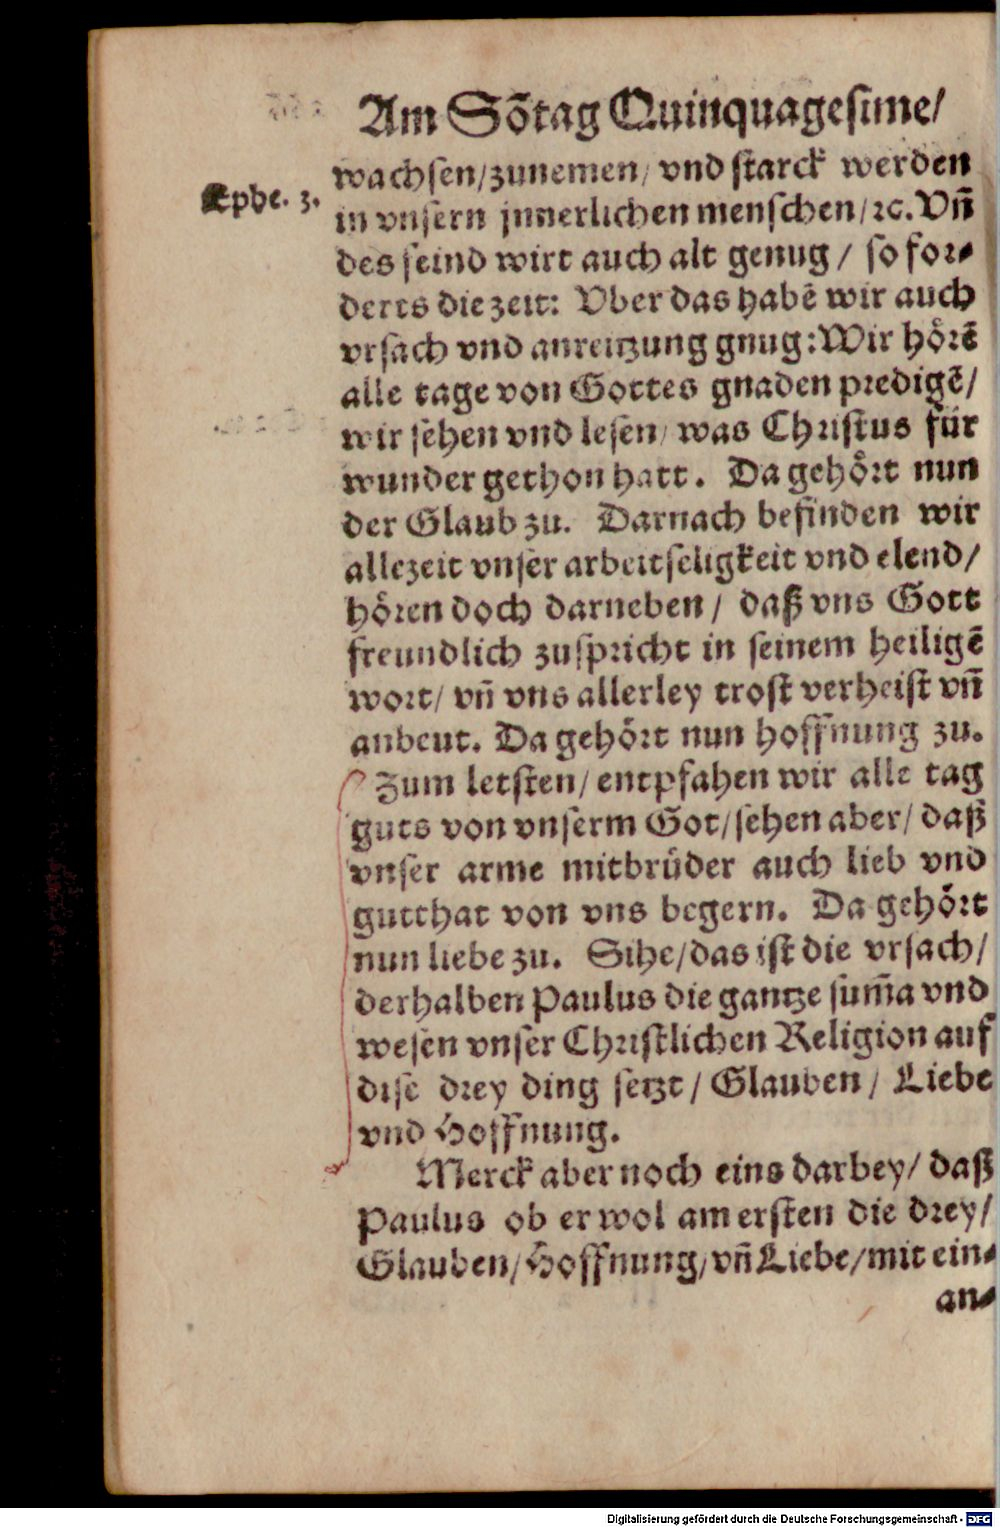 Am Sõtag Quinquagesime/
wachsen/zunemen/ vnd starck werden
Ephe. 3.
in vnsern jnnerlichen menschen/ꝛc. Vñ
des seind wirt auch alt genug / so for-
derts die zeit: Vber das habẽ wir auch
vrsach vnd anreitzung gnug: Wir hörẽ
alle tage von Gottes gnaden predigẽ/
wir sehen vnd lesen/ was Christus für
wunder gethon hatt. Da gehört nun
der Glaub zu. Darnach befinden wir
allezeit vnser arbeitseligkeit vnd elend/
hören doch darneben / daß vns Gott
freundlich zuspricht in seinem heiligẽ
wort/ vñ vns allerley trost verheist vñ
anbeut. Da gehört nun hoffnung zu.
Zum letsten/ entpfahen wir alle tag
guts von vnserm Got/sehen aber/ daß
vnser arme mitbrüder auch lieb vnd
gutthat von vns begern. Da gehört
nun liebe zu. Sihe/das ist die vrsach/
derhalben Paulus die gantze sum̃a vnd
wesen vnser Christlichen Religion auf
dise drey ding setzt / Glauben / Liebe
vnd Hoffnung.
Merck aber noch eins darbey/ daß
Paulus ob er wol am ersten die drey/
Glauben/Hoffnung/vñ Liebe/mit ein-
an-
Digitalisierung gefördert durch die Deutsche Forschungsgemeinschaft - DFG